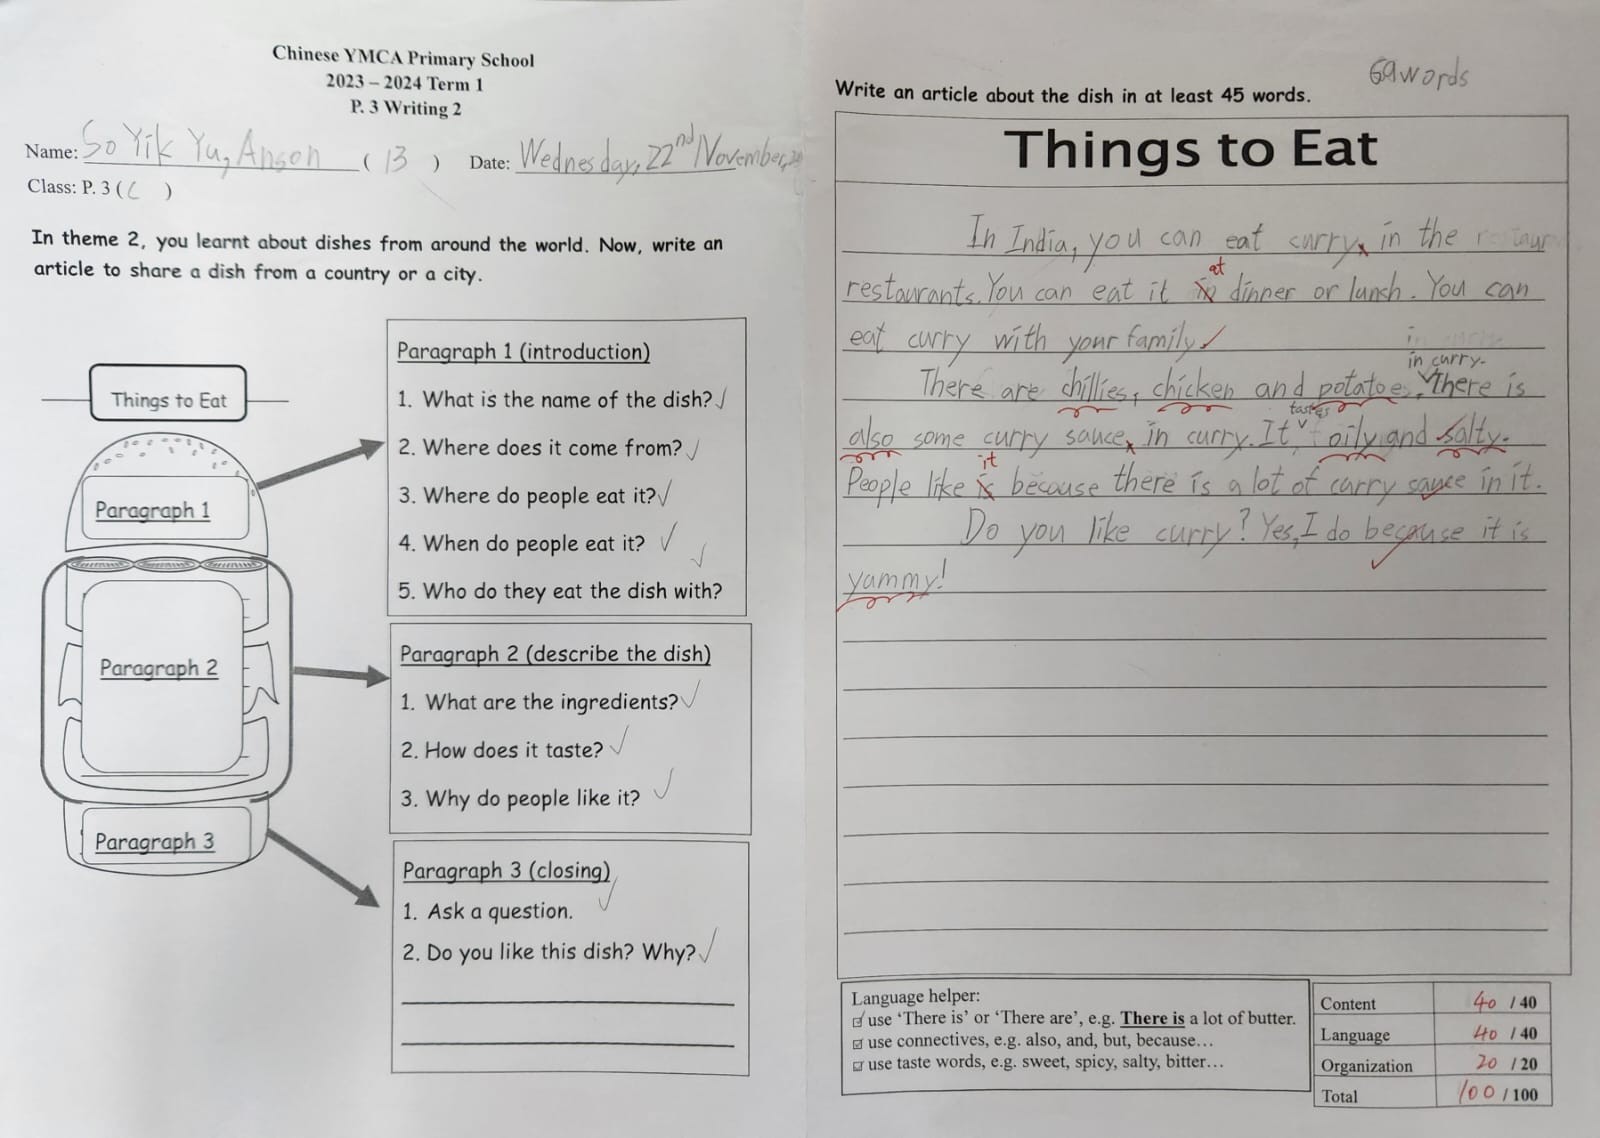 Chinese YMCA Primary School
2023 – 2024 Term 1
P. 3 Writing 2
Name: So Yik Yu, Anson ( 13 ) Date: Wednesday, 22nd November,
Class: P. 3 ( C )
In theme 2, you learnt about dishes from around the world. Now, write an
article to share a dish from a country or a city.
Things to Eat
Paragraph 1
Paragraph 2
Paragraph 3
Paragraph 1 (introduction)
1. What is the name of the dish?
2. Where does it come from?
3. Where do people eat it?
4. When do people eat it?
5. Who do they eat the dish with?
Paragraph 2 (describe the dish)
1. What are the ingredients?
2. How does it taste?
3. Why do people like it?
Paragraph 3 (closing)
1. Ask a question.
2. Do you like this dish? Why?
69 words
Write an article about the dish in at least 45 words.
Things to Eat
In India, you can eat curry, in the
at
restaurants. You can eat it in dinner or lunch. You can
eat curry with your family
in curry.
There are chillies, chicken and potatoe. There is
tastes
also some curry sauce, in curry. It oily and salty.
it
People like is because there is a lot of curry sauce in it.
Do you like curry? Yes, I do because it is
yammy!
Language helper:
☑ use ‘There is’ or ‘There are’, e.g. There is a lot of butter.
☑ use connectives, e.g. also, and, but, because…
☑ use taste words, e.g. sweet, spicy, salty, bitter…
Content 40 / 40
Language 40 / 40
Organization 20 / 20
Total 100 / 100